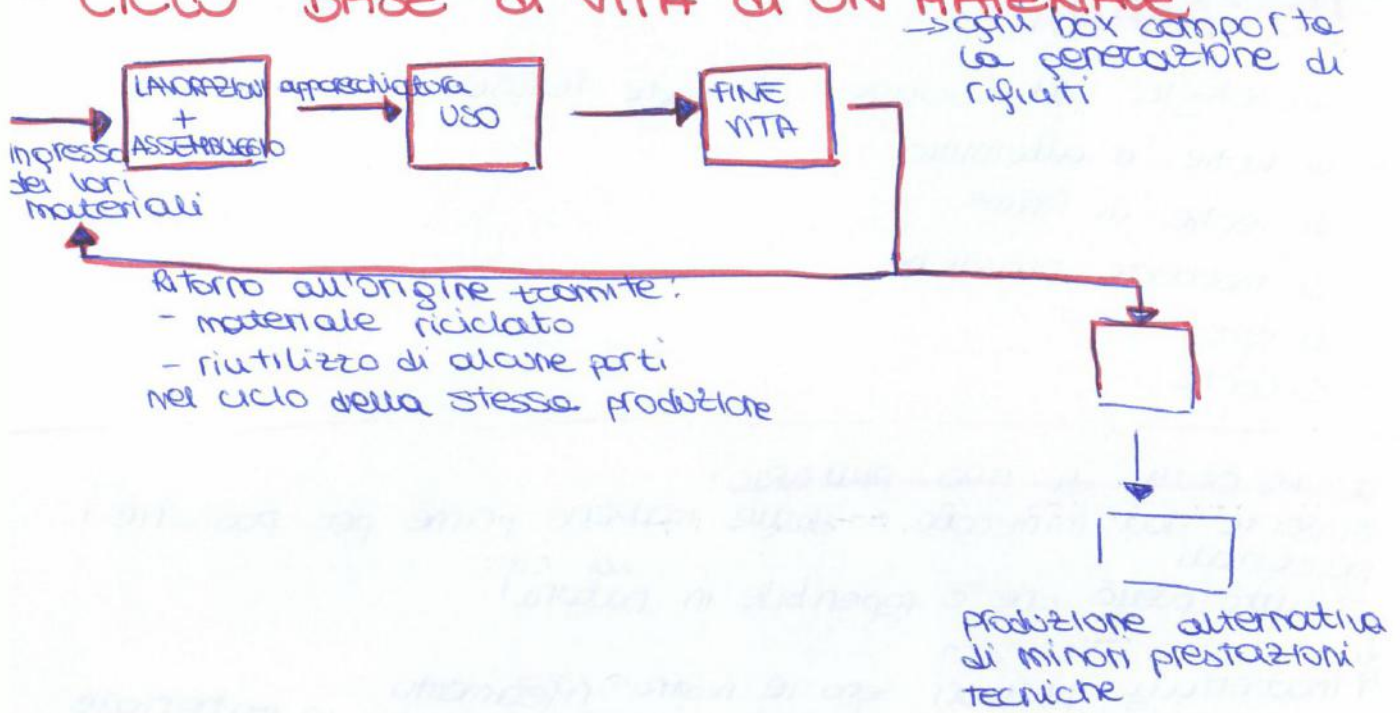 CICLO BASE di VITA di UN MATERIALE
→ ogni box comporta
la generazione di
rifiuti
LAVORAZIONI
+
ASSEMBLAGGIO
apparecchiatura
USO
FINE
VITA
ingresso
dei vari
materiali
Ritorno all'origine tramite:
- materiale riciclato
- riutilizzo di alcune parti
nel ciclo della stessa produzione
produzione alternativa
di minori prestazioni
tecniche